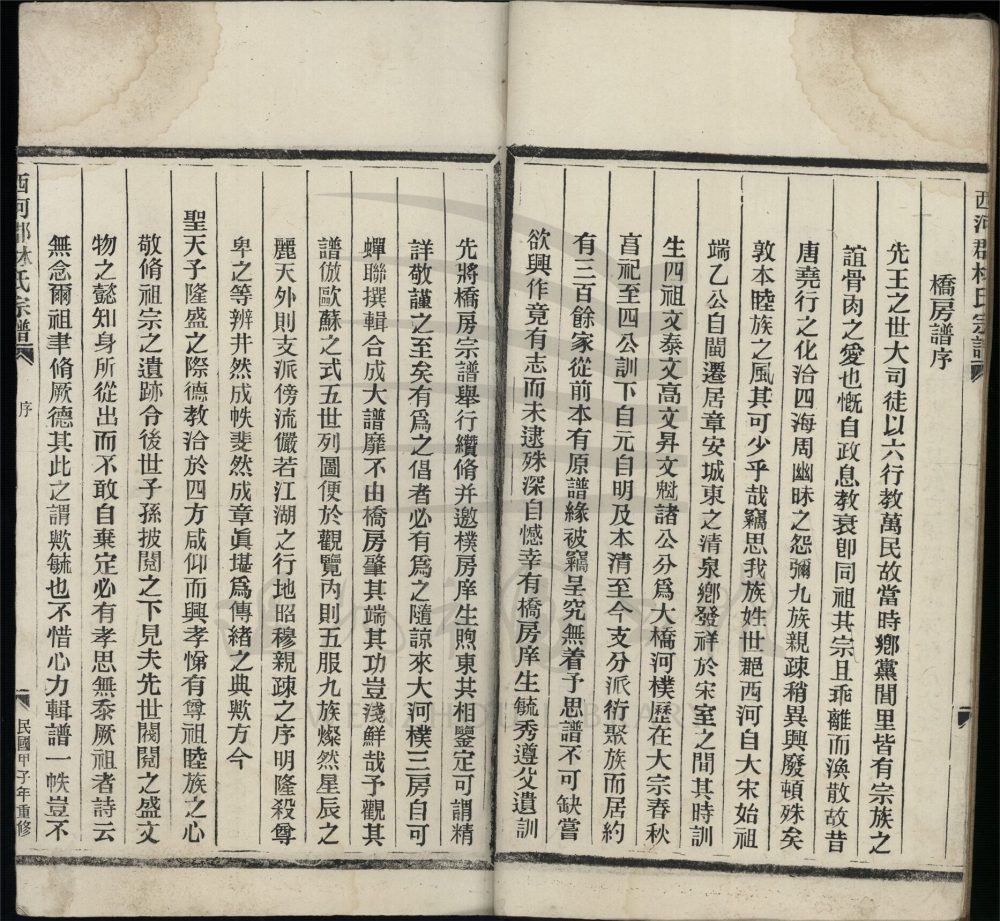 西河郡林氏宗譜
橋房譜序
先王之世大司徒以六行教萬民故當時鄕黨閭里皆有宗族之
誼骨肉之愛也慨自政息教衰卽同祖其宗且乖離而渙散故昔
唐堯行之化洽四海周幽昧之怨彌九族親疎稍異興廢頓殊矣
敦本睦族之風其可少乎哉竊思我族姓世郡西河自大宋始祖
端乙公自閩遷居章安城東之清泉鄕發祥於宋室之間其時訓
生四祖文泰文高文昇文魁諸公分爲大橋河樸歷在大宗春秋
亯祀至四公訓下自元自明及本清至今支分派衍聚族而居約
有三百餘家從前本有原譜緣被竊呈究無着予思譜不可缺嘗
欲興作竟有志而未逮殊深自憾幸有橋房庠生毓秀遵父遺訓
先將橋房宗譜舉行纘脩并邀樸房庠生煦東其相鑒定可謂精
詳敬謹之至矣有爲之倡者必有爲之隨諒來大河樸三房自可
蟬聯撰輯合成大譜靡不由橋房肇其端其功豈淺鮮哉予觀其
譜倣歐蘇之式五世列圖便於觀覽內則五服九族燦然星辰之
麗天外則支派傍流儼若江湖之行地昭穆親疎之序明隆殺尊
卑之等辨井然成帙斐然成章眞堪爲傳緒之典歟方今
聖天子隆盛之際德教洽於四方咸仰而興孝悌有尊祖睦族之心
敬脩祖宗之遺跡令後世子孫披閱之下見夫先世閥閱之盛文
物之懿知身所從出而不敢自棄定必有孝思無忝厥祖者詩云
無念爾祖聿脩厥德其此之謂歟毓也不惜心力輯譜一帙豈不
西河郡林氏宗譜
序
民國甲子年重修